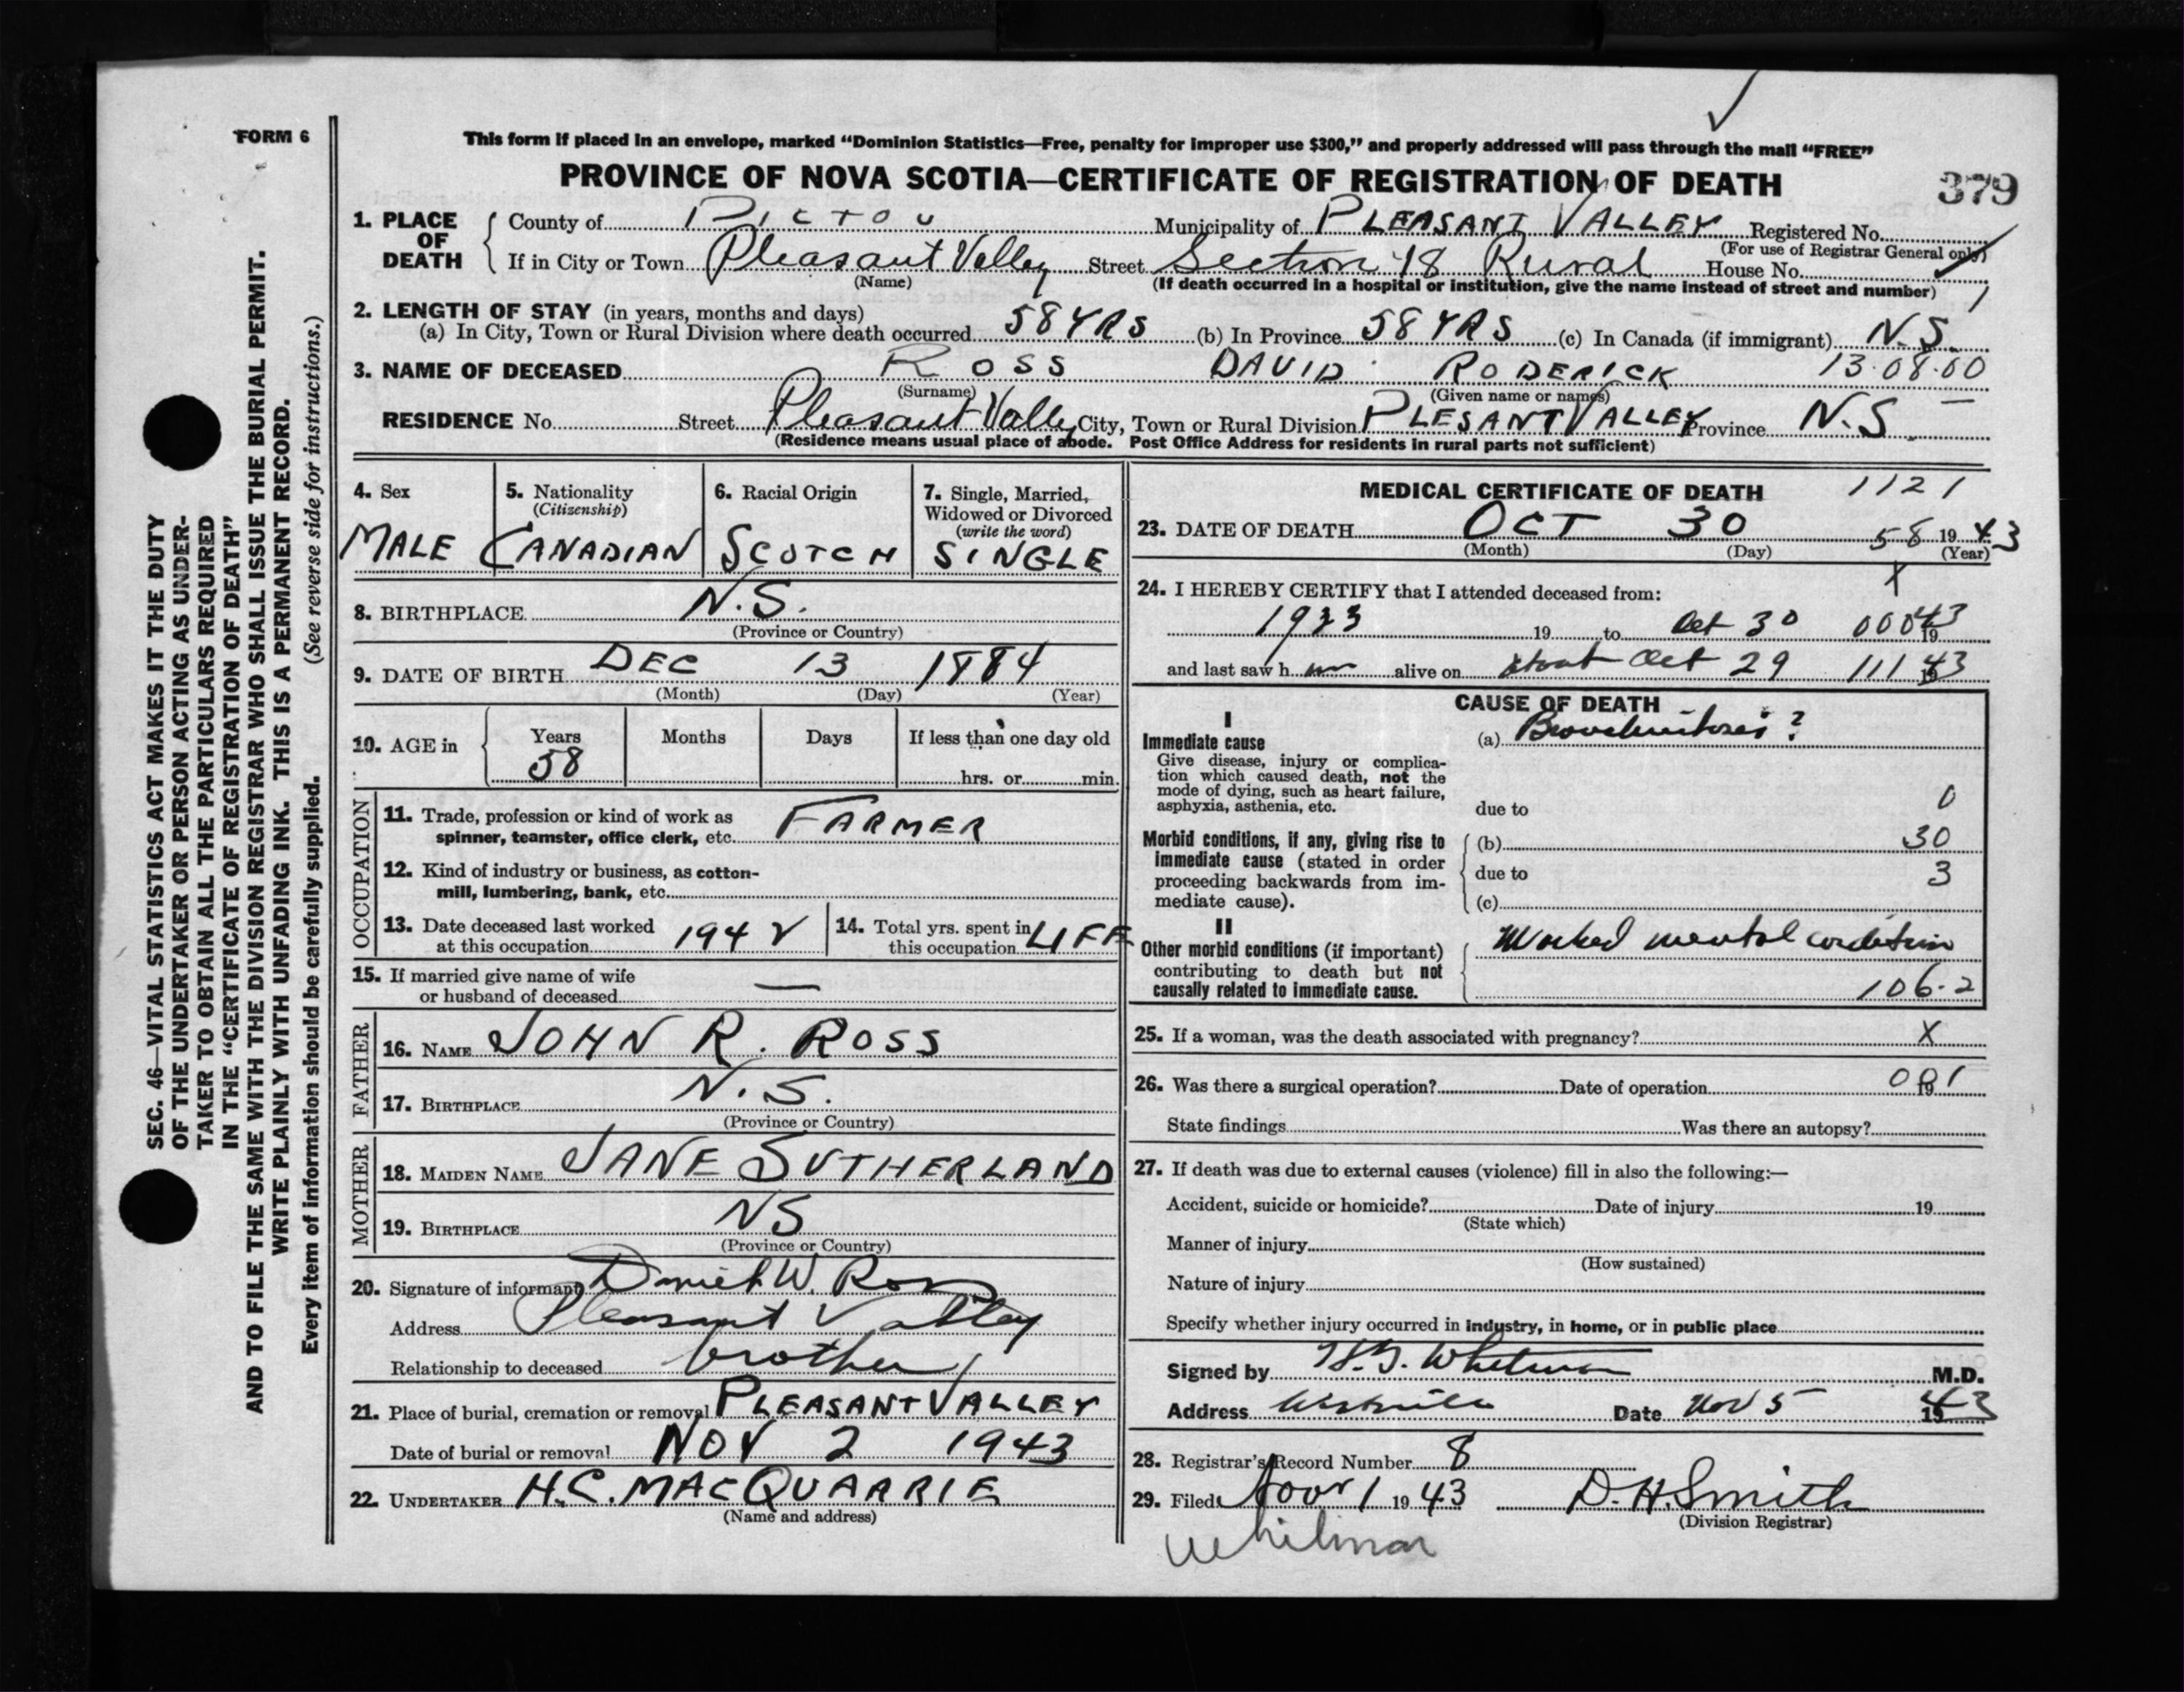 FORM 6
This form if placed in an envelope, marked “Dominion Statistics—Free, penalty for improper use $300,” and properly addressed will pass through the mail “FREE”
PROVINCE OF NOVA SCOTIA—CERTIFICATE OF REGISTRATION OF DEATH
379
1. PLACE OF DEATH
County of PICTOU Municipality of PLEASANT VALLEY Registered No.
(For use of Registrar General only)
If in City or Town Pleasant Valley Street Section 18 Rural House No.
(Name) (If death occurred in a hospital or institution, give the name instead of street and number) 1
2. LENGTH OF STAY (in years, months and days)
(a) In City, Town or Rural Division where death occurred 58 YRS (b) In Province 58 YRS (c) In Canada (if immigrant) N.S.
3. NAME OF DECEASED ROSS DAVID RODERICK 13.08.00
(Surname) (Given name or names)
RESIDENCE No. Street Pleasant Valley City, Town or Rural Division PLESANT VALLEY Province N.S.
(Residence means usual place of abode. Post Office Address for residents in rural parts not sufficient)
4. Sex
MALE
5. Nationality
(Citizenship)
CANADIAN
6. Racial Origin
SCOTCH
7. Single, Married, Widowed or Divorced
(write the word)
SINGLE
8. BIRTHPLACE N.S.
(Province or Country)
9. DATE OF BIRTH DEC 13 1884
(Month) (Day) (Year)
10. AGE in Years Months Days If less than one day old
58 hrs. or min.
OCCUPATION
11. Trade, profession or kind of work as
spinner, teamster, office clerk, etc. FARMER
12. Kind of industry or business, as cotton-
mill, lumbering, bank, etc.
13. Date deceased last worked
at this occupation 1942
14. Total yrs. spent in
this occupation LIFE
15. If married give name of wife
or husband of deceased —
FATHER
16. NAME JOHN R. ROSS
17. BIRTHPLACE N.S.
(Province or Country)
MOTHER
18. MAIDEN NAME JANE SUTHERLAND
19. BIRTHPLACE NS
(Province or Country)
20. Signature of informant Daniel W. Ross
Address Pleasant Valley
Relationship to deceased brother
21. Place of burial, cremation or removal PLEASANT VALLEY
Date of burial or removal NOV 2 1943
22. UNDERTAKER H.C. MACQUARRIE
(Name and address)
MEDICAL CERTIFICATE OF DEATH 1121
23. DATE OF DEATH OCT 30 58 1943
(Month) (Day) (Year)
X
24. I HEREBY CERTIFY that I attended deceased from:
1933 19 to Oct 30 000 1943
and last saw h im alive on about Oct 29 111 1943
CAUSE OF DEATH
I
Immediate cause
Give disease, injury or complica-
tion which caused death, not the
mode of dying, such as heart failure,
asphyxia, asthenia, etc.
(a) ?
due to 0
Morbid conditions, if any, giving rise to
immediate cause (stated in order
proceeding backwards from im-
mediate cause).
(b) 30
due to 3
(c)
II
Other morbid conditions (if important)
contributing to death but not
causally related to immediate cause.
Marked mental condition
106-2
25. If a woman, was the death associated with pregnancy? X
26. Was there a surgical operation? Date of operation 001 19
State findings Was there an autopsy?
27. If death was due to external causes (violence) fill in also the following:—
Accident, suicide or homicide? Date of injury 19
(State which)
Manner of injury
(How sustained)
Nature of injury
Specify whether injury occurred in industry, in home, or in public place
Signed by Whitman M.D.
Address Westville Date Nov 5 1943
28. Registrar's Record Number 8
29. Filed Nov 1 1943 D.H. Smith
(Division Registrar)
Whitman
SEC. 46—VITAL STATISTICS ACT MAKES IT THE DUTY
OF THE UNDERTAKER OR PERSON ACTING AS UNDER-
TAKER TO OBTAIN ALL THE PARTICULARS REQUIRED
IN THE “CERTIFICATE OF REGISTRATION OF DEATH”
AND TO FILE THE SAME WITH THE DIVISION REGISTRAR WHO SHALL ISSUE THE BURIAL PERMIT.
WRITE PLAINLY WITH UNFADING INK. THIS IS A PERMANENT RECORD.
Every item of information should be carefully supplied. (See reverse side for instructions.)